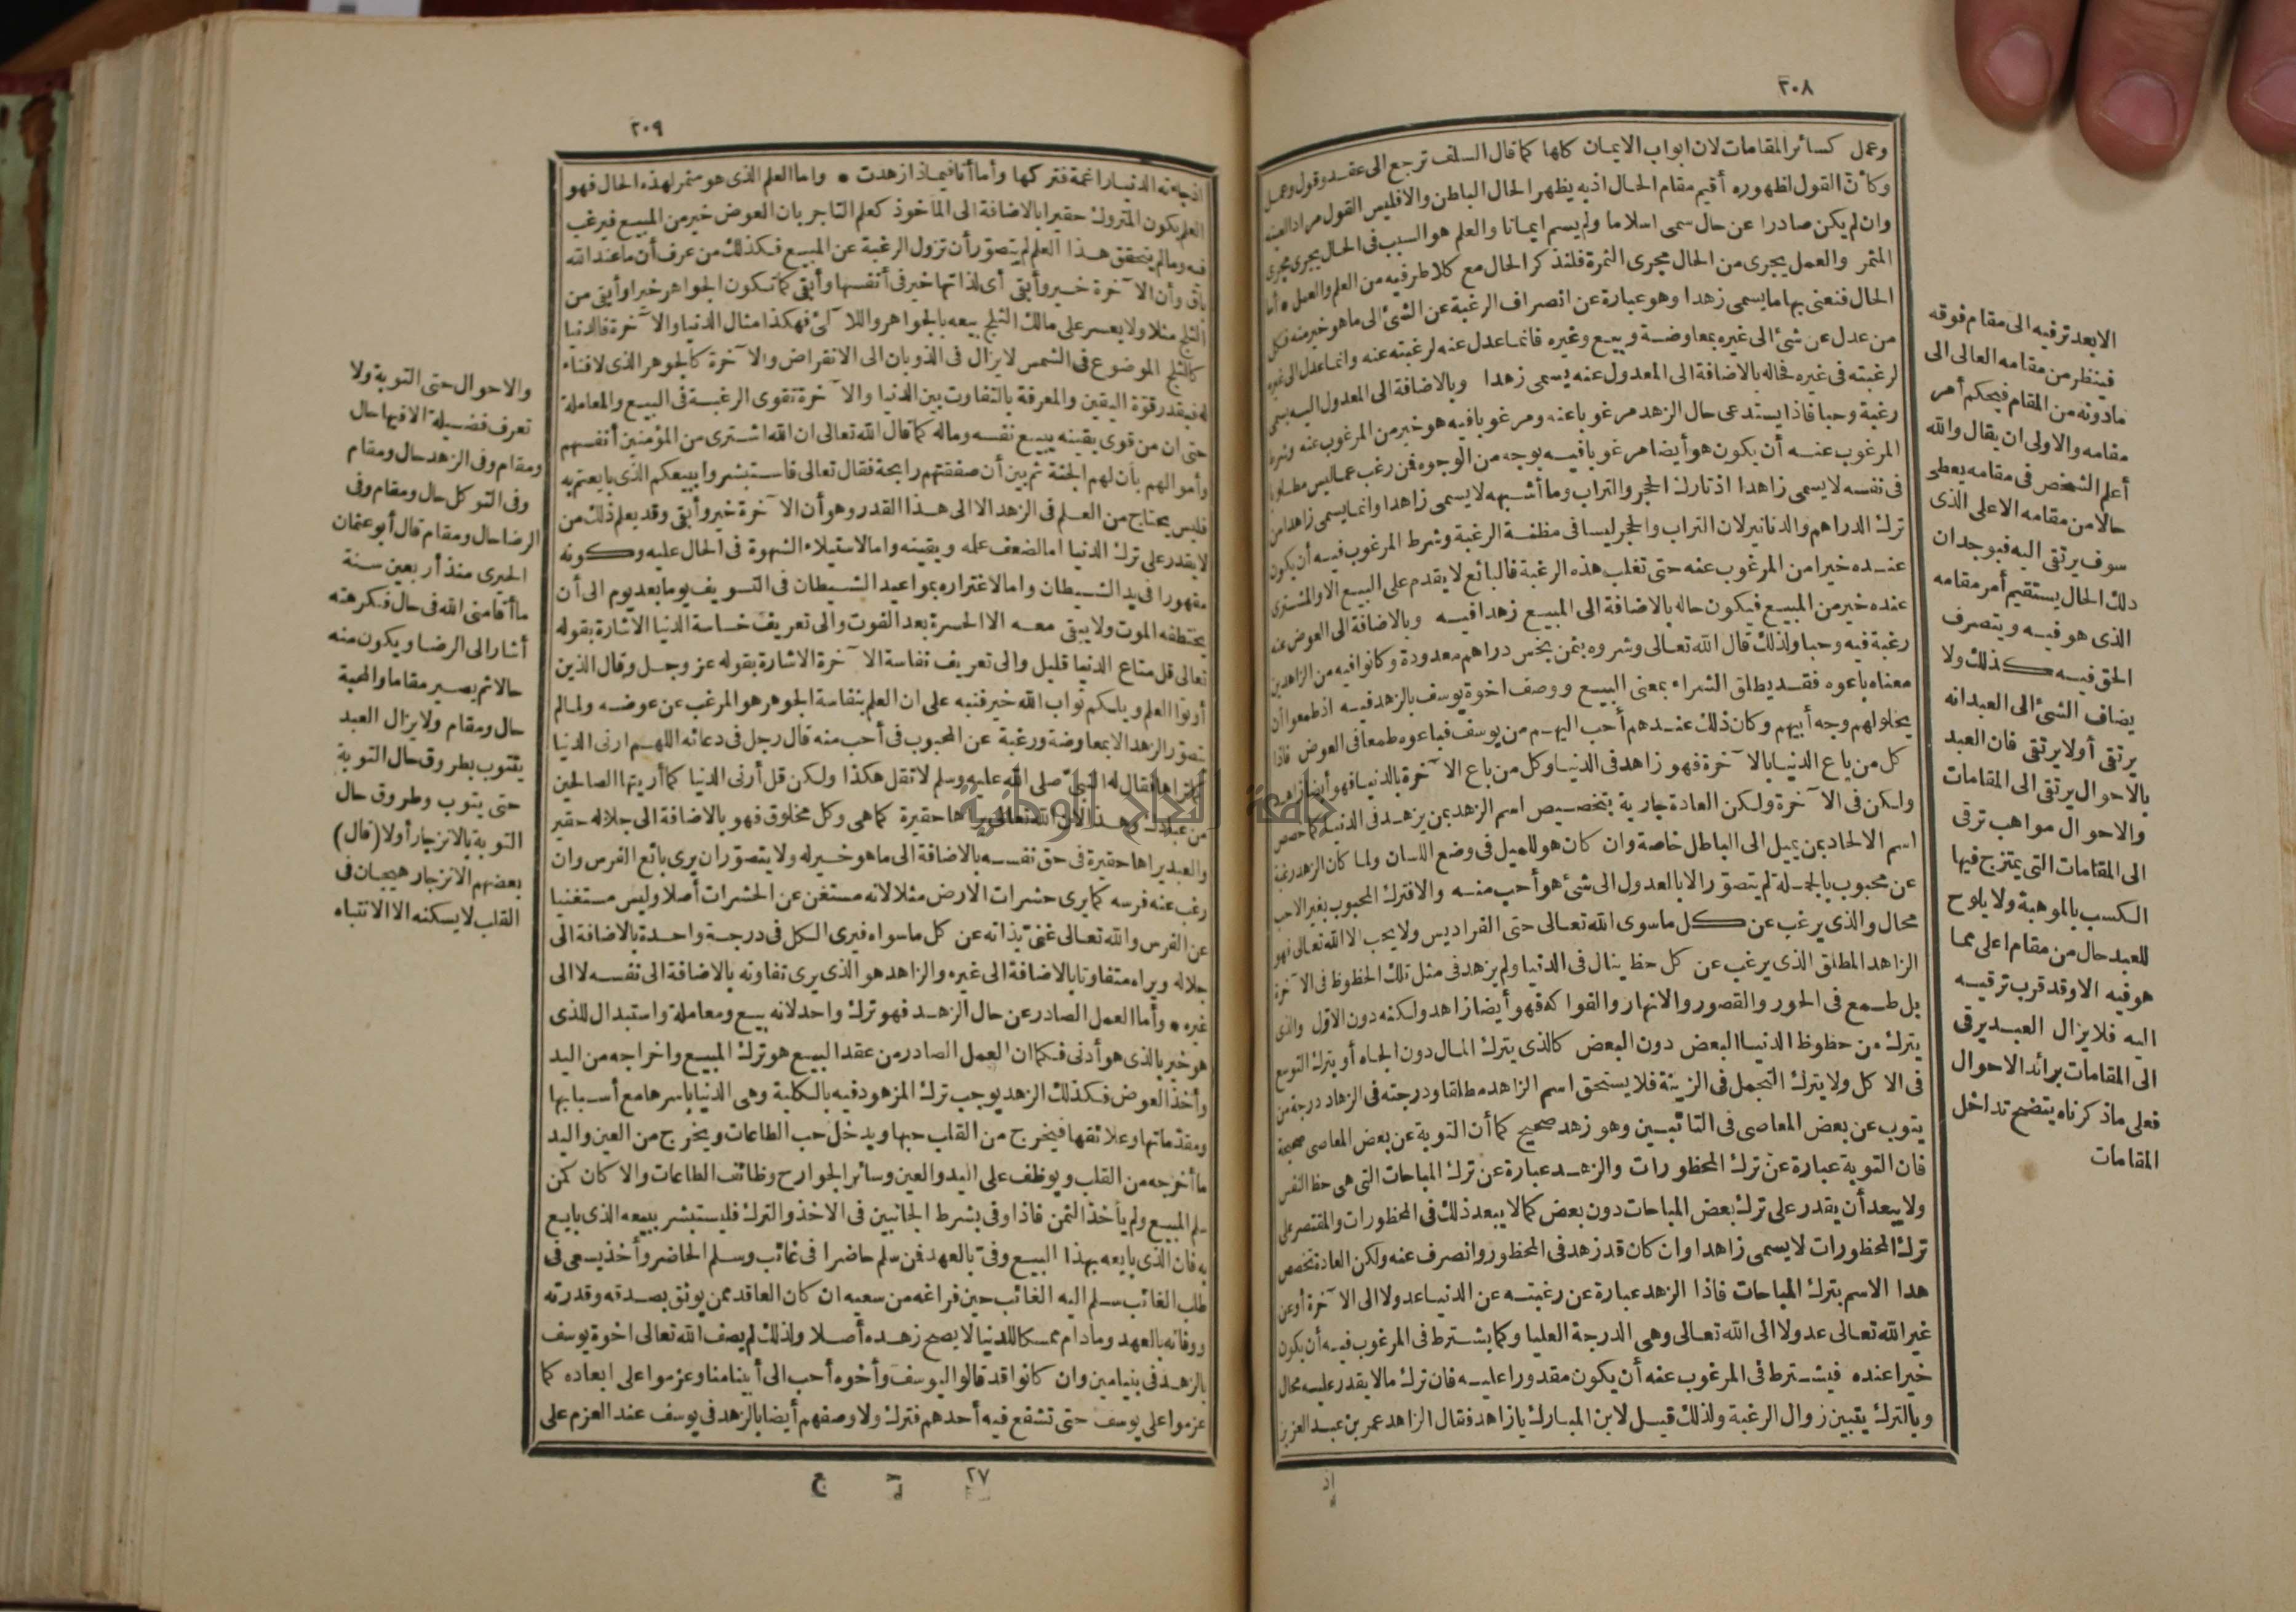 ٢٠٨
وعمل كسائر المقامات لان ابواب الايمان كلها كما قال السلف ترجع الى عقد وقول وعمل
وكأن القول لظهوره أقيم مقام الحال اذ به يظهر الحال الباطن والا فليس القول مرادا لعينه
وان لم يكن صادرا عن حال سمى اسلاما ولم يسم ايمانا والعلم هو السبب فى الحال يجرى مجرى
المثمر والعمل يجرى من الحال مجرى الثمرة فلنذكر الحال مع كلا طرفيه من العلم والعمل • أما
الحال فنعنى بها ما يسمى زهدا وهو عبارة عن انصراف الرغبة عن الشئ الى ما هو خير منه فكل
من عدل عن شئ الى غيره بمعاوضة وبيع وغيره فانما عدل عنه لرغبته عنه وانما عدل الى غيره
لرغبته فى غيره فحاله بالاضافة الى المعدول عنه يسمى زهدا وبالاضافة الى المعدول اليه يسمى
رغبة وحبا فاذا يستدعى حال الزهد مرغوبا عنه ومرغوبا فيه هو خير من المرغوب عنه وشرط
المرغوب عنه أن يكون هو أيضا مرغوبا فيه بوجه من الوجوه فمن رغب عما ليس مطلوبا
فى نفسه لا يسمى زاهدا اذ تارك الحجر والتراب وما أشبهه لا يسمى زاهدا وانما يسمى زاهدا من
ترك الدراهم والدنانير لان التراب والحجر ليسا فى مظنة الرغبة وشرط المرغوب فيه أن يكون
عنده خيرا من المرغوب عنه حتى تغلب هذه الرغبة فالبائع لا يقدم على البيع الا والمشترى
عنده خير من المبيع فيكون حاله بالاضافة الى المبيع زهدا فيه وبالاضافة الى العوض عنه
رغبة فيه وحبا ولذلك قال الله تعالى وشروه بثمن بخس دراهم معدودة وكانوا فيه من الزاهدين
معناه باعوه فقد يطلق الشراء بمعنى البيع ووصف اخوة يوسف بالزهد فيه اذ طمعوا أن
يخلو لهم وجه أبيهم وكان ذلك عندهم أحب اليهم من يوسف فباعوه طمعا فى العوض فاذا
كل من باع الدنيا بالآخرة فهو زاهد فى الدنيا وكل من باع الآخرة بالدنيا فهو أيضا زاهد
ولكن فى الآخرة ولكن العادة جارية بتخصيص اسم الزهد بمن يزهد فى الدنيا كما خصص
اسم الالحاد بمن يميل الى الباطل خاصة وان كان هو للميل فى وضع اللسان ولما كان الزهد رغبة
عن محبوب بالجملة لم يتصور الا بالعدول الى شئ هو أحب منه والا فترك المحبوب بغير الاحب
محال والذى يرغب عن كل ما سوى الله تعالى حتى الفراديس ولا يحب الا الله تعالى فهو
الزاهد المطلق والذى يرغب عن كل حظ ينال فى الدنيا ولم يزهد فى مثل تلك الحظوظ فى الآخرة
بل طمع فى الحور والقصور والانهار والفواكه فهو أيضا زاهد ولكنه دون الاول والذى
يترك من حظوظ الدنيا البعض دون البعض كالذى يترك المال دون الجاه أو يترك التوسع
فى الاكل ولا يترك التجمل فى الزينة فلا يستحق اسم الزاهد مطلقا ودرجته فى الزهاد درجة من
يتوب عن بعض المعاصى فى التائبين وهو زهد صحيح كما أن التوبة عن بعض المعاصى صحيحة
فان التوبة عبارة عن ترك المحظورات والزهد عبارة عن ترك المباحات التى هى حظ النفس
ولا يبعد أن يقدر على ترك بعض المباحات دون بعض كما لا يبعد ذلك فى المحظورات والمقتصر على
ترك المحظورات لا يسمى زاهدا وان كان قد زهد فى المحظور وانصرف عنه ولكن العادة تخصص
هذا الاسم بترك المباحات فاذا الزهد عبارة عن رغبته عن الدنيا عدولا الى الآخرة أو عن
غير الله تعالى عدولا الى الله تعالى وهى الدرجة العليا وكما يشترط فى المرغوب فيه أن يكون
خيرا عنده فيشترط فى المرغوب عنه أن يكون مقدورا عليه فان ترك ما لا يقدر عليه محال
وبالترك يتبين زوال الرغبة ولذلك قيل لابن المبارك يا زاهد فقال الزاهد عمر بن عبد العزيز
اذ
الابعد ترقيه الى مقام فوقه
فينظر من مقامه العالى الى
مادونه من المقام فيحكم أمر
مقامه والاولى ان يقال والله
أعلم الشخص فى مقامه يعطى
حالا من مقامه الاعلى الذى
سوف يرتقى اليه فبوجدان
ذلك الحال يستقيم أمر مقامه
الذى هو فيه ويتصرف
الحق فيه كذلك ولا
يضاف الشئ الى العبد انه
يرتقى أولا يرتقى فان العبد
بالاحوال يرتقى الى المقامات
والاحوال مواهب ترقى
الى المقامات التى يمتزج فيها
الكسب بالموهبة ولا يلوح
للعبد حال من مقام اعلى مما
هو فيه الا وقد قرب ترقيه
اليه فلا يزال العبد يرقى
الى المقامات بزائد الاحوال
فعلى ماذكرناه يتضح تداخل
المقامات
٢٠٩
اذ جاءته الدنيا راغمة فتركها وأما أنا ففيماذا زهدت • واما العلم الذى هو مثمر لهذه الحال فهو
العلم بكون المتروك حقيرا بالاضافة الى المأخوذ كعلم التاجر بان العوض خير من المبيع فيرغب
فيه وما لم يتحقق هذا العلم لم يتصور أن تزول الرغبة عن المبيع فكذلك من عرف أن ما عند الله
باق وأن الآخرة خير وأبقى أى لذاتها خير فى أنفسها وأبقى كما تكون الجواهر خيرا وأبقى من
الثلج مثلا ولا يعسر على مالك الثلج بيعه بالجواهر واللآلئ فهكذا مثال الدنيا والآخرة فالدنيا
كالثلج الموضوع فى الشمس لا يزال فى الذوبان الى الانقراض والآخرة كالجوهر الذى لا فناء
له فبقدر قوة اليقين والمعرفة بالتفاوت بين الدنيا والآخرة تقوى الرغبة فى البيع والمعاملة
حتى ان من قوى يقينه يبيع نفسه وماله كما قال الله تعالى ان الله اشترى من المؤمنين أنفسهم
وأموالهم بان لهم الجنة ثم بين أن صفقتهم رابحة فقال تعالى فاستبشروا ببيعكم الذى بايعتم به
فليس يحتاج من العلم فى الزهد الا الى هذا القدر وهو أن الآخرة خير وأبقى وقد يعلم ذلك من
لا يقدر على ترك الدنيا اما لضعف علمه ويقينه واما لاستيلاء الشهوة فى الحال عليه وكونه
مقهورا فى يد الشيطان واما لاغتراره بمواعيد الشيطان فى التسويف يوما بعد يوم الى أن
يختطفه الموت ولا يبقى معه الا الحسرة بعد الفوت والى تعريف خساسة الدنيا الاشارة بقوله
تعالى قل متاع الدنيا قليل والى تعريف نفاسة الآخرة الاشارة بقوله عز وجل وقال الذين
أوتوا العلم ويلكم ثواب الله خير فنبه على ان العلم بنفاسة الجوهر هو المرغب عن عوضه ولما لم
يتصور الزهد الا بمعاوضة ورغبة عن المحبوب فى أحب منه قال رجل فى دعائه اللهم ارنى الدنيا
كما تراها فقال له النبى صلى الله عليه وسلم لا تقل هكذا ولكن قل أرنى الدنيا كما أريتها الصالحين
من عبادك وهذا لان الله تعالى يراها حقيرة كما هى وكل مخلوق فهو بالاضافة الى جلاله حقير
والعبد يراها حقيرة فى حق نفسه بالاضافة الى ما هو خير له ولا يتصور ان يرى بائع الفرس وان
رغب عنه فرسه كما يرى حشرات الارض مثلا لانه مستغن عن الحشرات أصلا وليس مستغنيا
عن الفرس والله تعالى غنى بذاته عن كل ما سواه فيرى الكل فى درجة واحدة بالاضافة الى
جلاله ويراه متفاوتا بالاضافة الى غيره والزاهد هو الذى يرى تفاوته بالاضافة الى نفسه لا الى
غيره • وأما العمل الصادر عن حال الزهد فهو ترك واحد لانه بيع ومعاملة واستبدال للذى
هو خير بالذى هو أدنى فكما ان العمل الصادر من عقد البيع هو ترك المبيع واخراجه من اليد
وأخذ العوض فكذلك الزهد يوجب ترك المزهود فيه بالكلية وهى الدنيا باسرها مع أسبابها
ومقدماتها وعلائقها فيخرج من القلب حبها ويدخل حب الطاعات ويخرج من العين واليد
ما أخرجه من القلب ويوظف على اليد والعين وسائر الجوارح وظائف الطاعات والا كان كمن
سلم المبيع ولم يأخذ الثمن فاذا وفى بشرط الجانبين فى الاخذ والترك فليستبشر ببيعه الذى بايع
به فان الذى بايعه بهذا البيع وفى بالعهد فمن سلم حاضرا فى غائب وسلم الحاضر وأخذ يسعى فى
طلب الغائب سلم اليه الغائب حين فراغه من سعيه ان كان العاقد ممن يوثق بصدقه وقدرته
ووفائه بالعهد وما دام ممسكا للدنيا لا يصح زهده أصلا ولذلك لم يصف الله تعالى اخوة يوسف
بالزهد فى بنيامين وان كانوا قد قالوا ليوسف وأخوه أحب الى أبينا منا وعزموا على ابعاده كما
عزموا على يوسف حتى تشفع فيه أحدهم فترك ولا وصفهم أيضا بالزهد فى يوسف عند العزم على
٢٧
ح
ج
والاحوال حتى التوبة ولا
تعرف فضيلة الا فيها حال
ومقام وفى الزهد حال ومقام
وفى التوكل حال ومقام وفى
الرضا حال ومقام قال أبو عثمان
الحيرى منذ أربعين سنة
ما أقامنى الله فى حال فكرهته
أشار الى الرضا ويكون منه
حالا ثم يصير مقاما والمحبة
حال ومقام ولا يزال العبد
يتتوب بطروق حال التوبة
حتى يتوب وطروق حال
التوبة بالانزجار أولا (قال)
بعضهم الانزجار هيجان فى
القلب لا يسكنه الا الانتباه
جامعة النجاح الوطنية